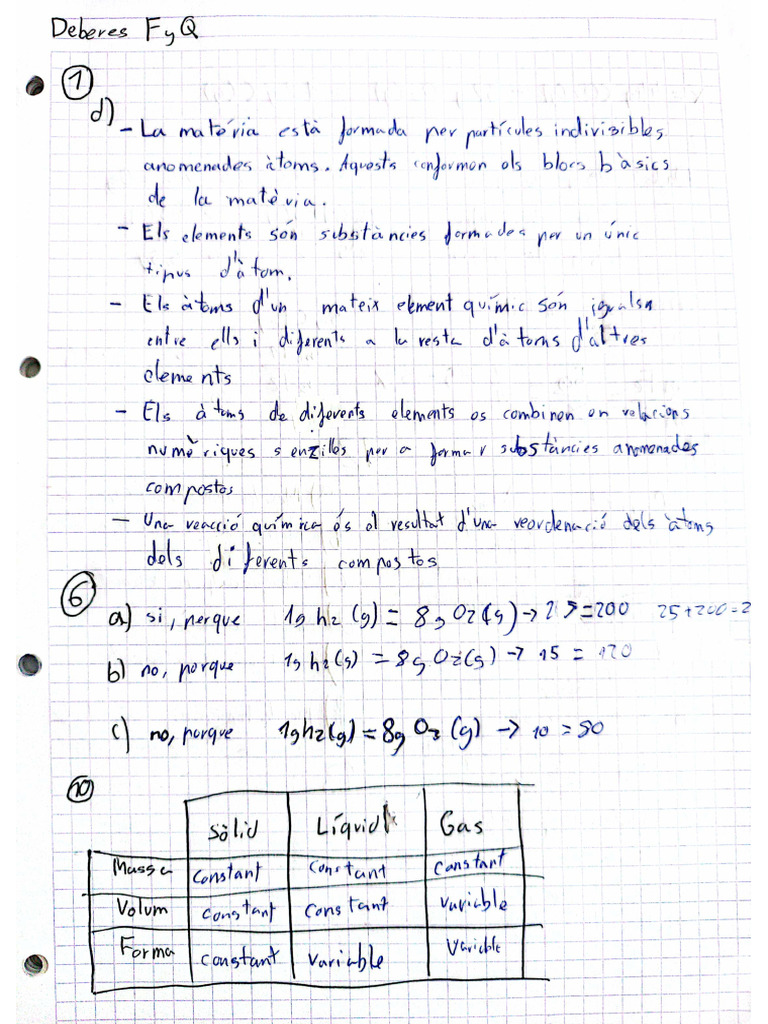 Deberes FyQ
1
d)
- La matéria està formada per partícules indivisibles
anomenades àtoms. Aquests conformen els blocs bàsics
de la matèria.
- Els elements són substàncies formades per un únic
tipus d'àtom.
- Els àtoms d'un mateix element químic són iguals
entre ells i diferents a la resta d'àtoms d'altres
elements
- Els àtoms de diferents elements es combinen en relacions
numèriques senzilles per a formar substàncies anomenades
compostos
- Una reacció química és el resultat d'una reordenació dels àtoms
dels diferents compostos
6
a) si, perque 1g h2 (g) = 8g O2(g) → 25 = 200 25+200=2
b) no, porque 1g h2(g) = 8g O2(g) → 15 = 120
c) no, porque 1g h2(g) = 8g O2 (g) → 10 = 80
10
Sòlid Líquid Gas
Massa constant constant constant
Volum constant constant variable
Forma constant variable variable